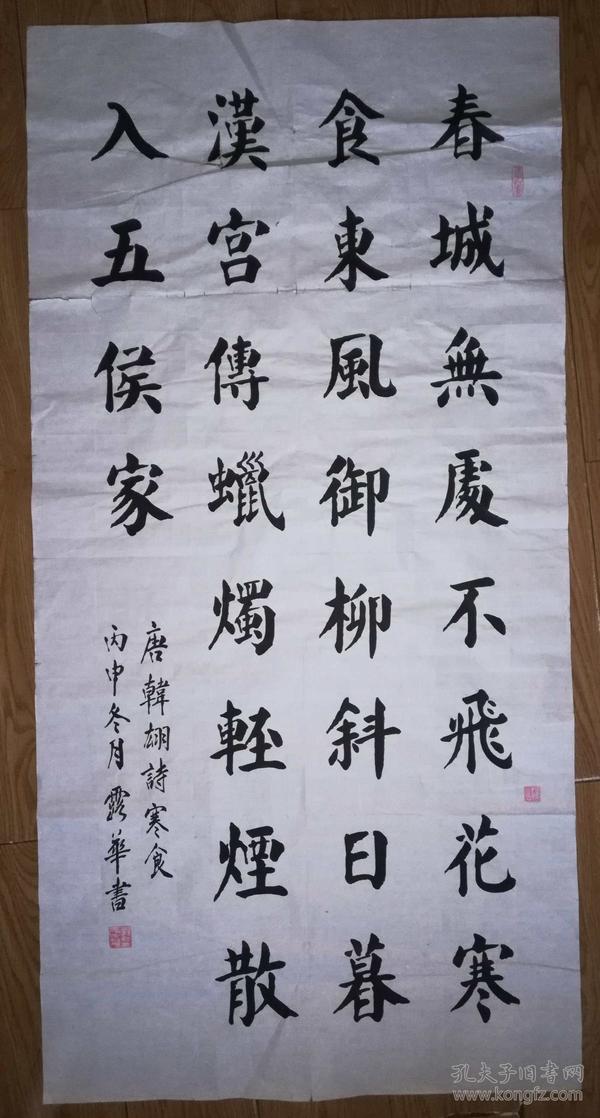 春城無處不飛花寒
食東風御柳斜日暮
漢宮傳蠟燭輕煙散
入五侯家
唐韓翃詩寒食
丙申冬月露華書
孔夫子旧书网
www.kongfz.com